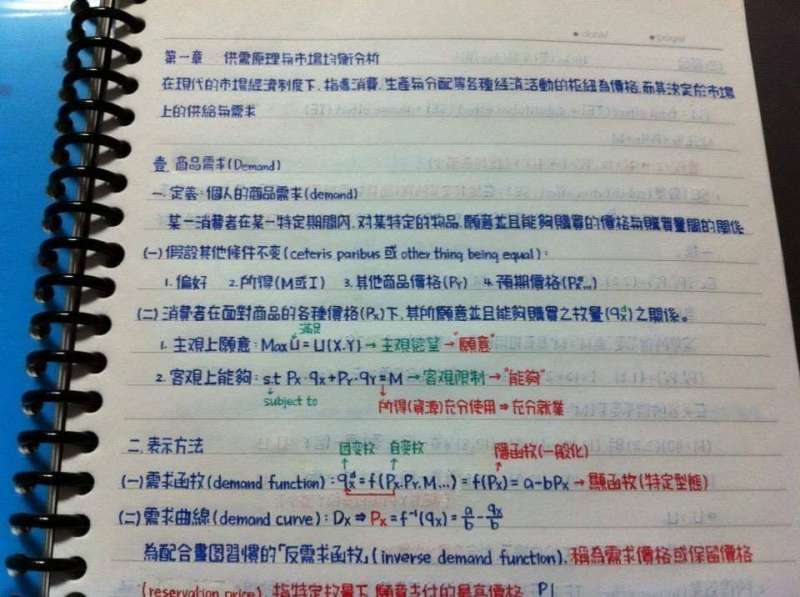 第一章 供需原理与市場均衡分析
在現代的市場經濟制度下,指導消費、生產与分配等各種經濟活動的樞紐為價格,而其決定於市場
上的供給与需求
壹、商品需求(Demand)
一、定義:個人的商品需求(demand)
某一消費者在某一特定期間內,対某特定的物品,願意並且能夠購買的價格与購買量間的關係
(一)假設其他條件不变(ceteris paribus 或 other thing being equal):
1.偏好 2.所得(M或I) 3.其他商品價格(Py) 4.預期價格
(二)消費者在面對商品的各種價格(Px)下,其所願意並且能夠購買之数量(qxᵈ)之關係。
滿足
1.主观上願意:Max U = U(X.Y)→主观慾望→"願意"
2.客观上能夠:s.t Px·qx+Py·qy=M→客观限制→"能夠"
subject to 所得(資源)充分使用⇒充分就業
二、表示方法
因变数 自变数 隱函数(一般化)
(一)需求函数(demand function):qxᵈ=f(Px.Py.M...)=f(Px)=a-bPx→顯函数(特定型態)
(二)需求曲線(demand curve):Dx⇒Px=f⁻¹(qx)=a/b-qx/b
為配合畫图習慣的「反需求函数」(inverse demand function),稱為需求價格或保留價格
(reservation price),指特定数量下,願意支付的最高價格